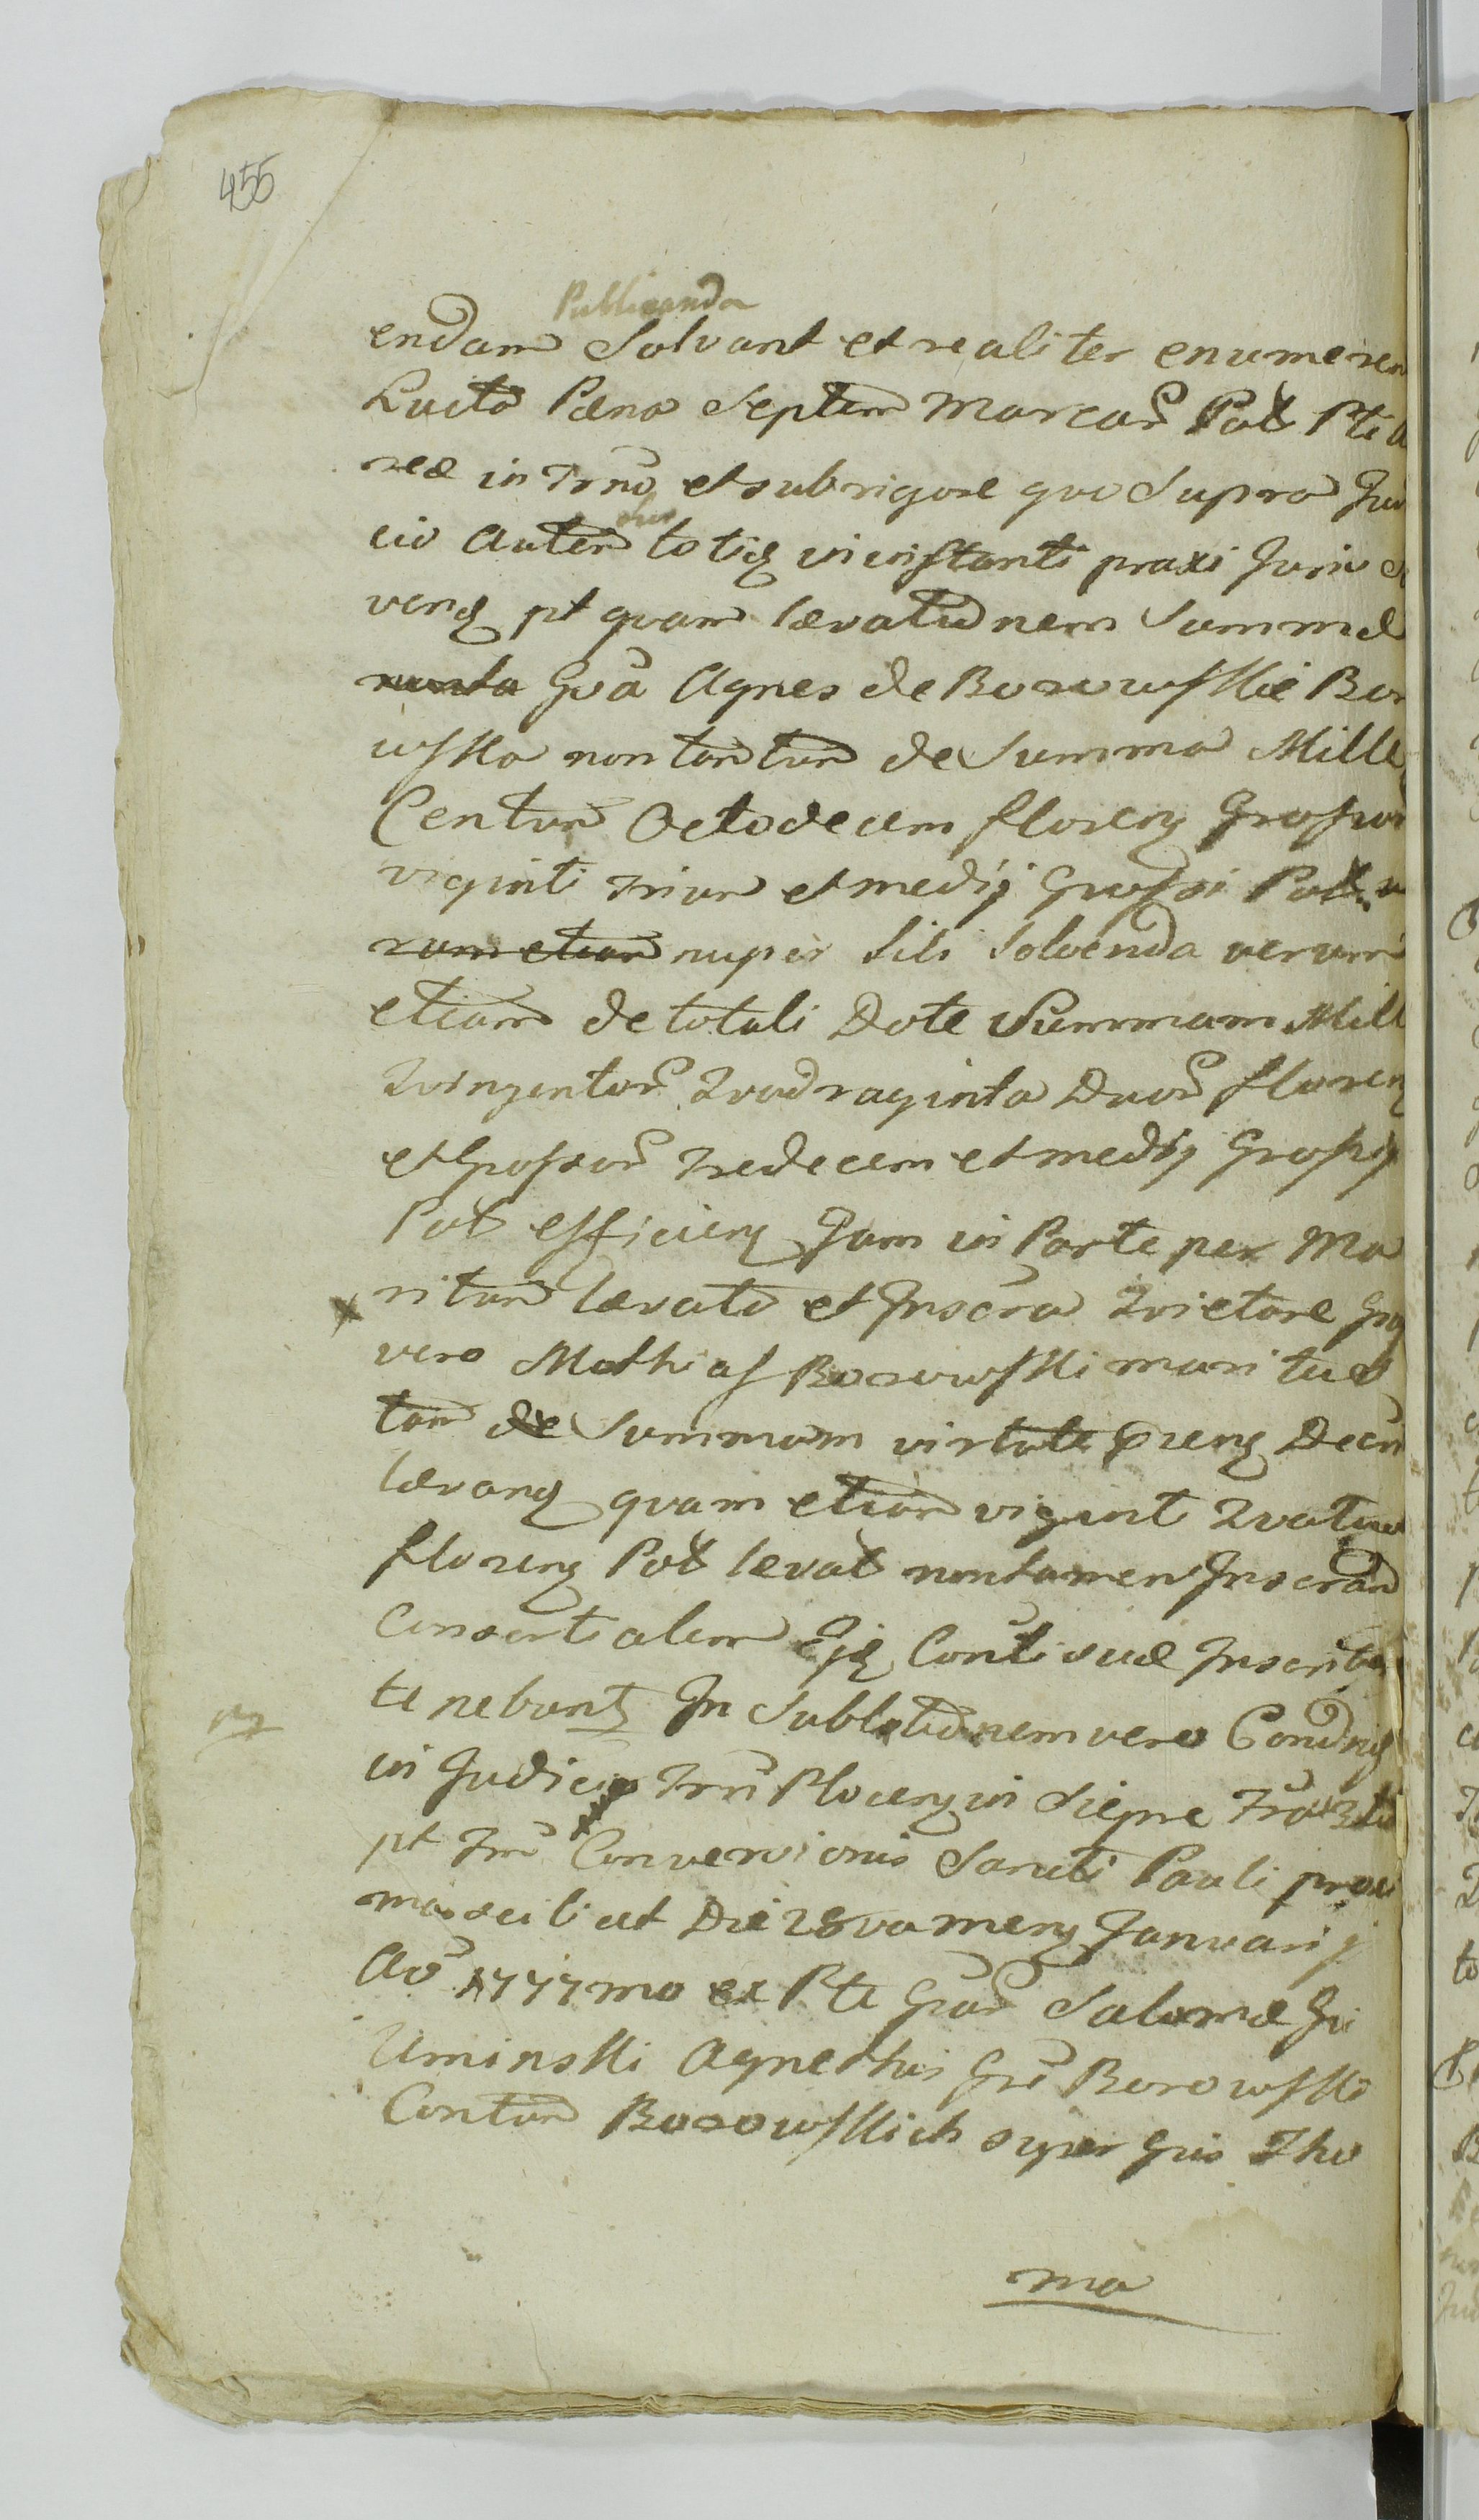 455
Publicanda
endam Solvant et realiter enumeren
Lucto Pæna Septem Marcar̃ Pol Pti
reæ in Trno et sub rigore quo Supra Ju
cio Autem totiq in instanti praxi Juris
sue
venq pt quam lævationem Summæ
nunta Gṽa Agnes de Borowskie Bor
wska non tantum de Summa Mille
Centum Octodecem florenq Grossor
viginti Trium et medij Grossi Pol
rum etiam nuper Sibi Solvenda verum
etiam de totali Dote Summam Mill
Quingentor̃ Quadraginta Duor̃ floren
et Grossor̃ Tredecem et medij Grossij
Pol efficienq Jam in Parte per Ma
x ritum lævata et Inscra Quietare
vero Mathias Borowski maritus
tam de Summam virtute pñenq Decri
lævanq quam etiam viginti Quatuor
florenq Pol levat non tamen Inscram
Consortialem Ejq Conti suæ Inscribe
tenebunt In Sublationem vero Condnq
in Judicijs Trri Plocenq in Sierpc
pt Trm Conversionis Sancti Pauli proxi
mo scilicet Die 28va menq Januarij
Aõ 1777mo ex Pte Gṽar̃ Salomæ Gi
Uminski Agnethis Gri Borowski
Contum Borowskich super Gris Tho
ma